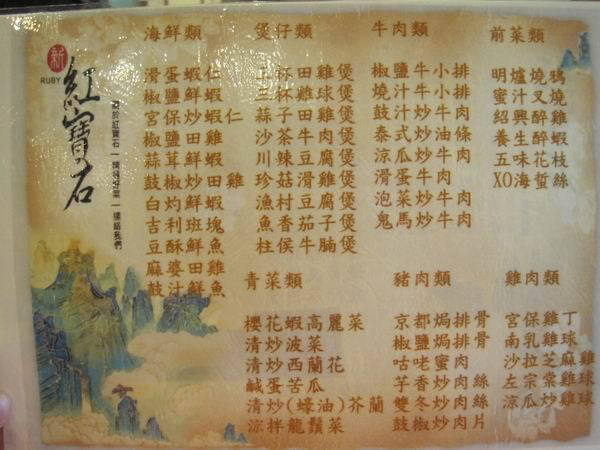 新
RUBY
紅寶石
海鮮類
滑蛋蝦仁
椒鹽鮮蝦
宮保炒蝦仁
椒鹽田雞
蒜茸鮮蝦
鼓椒炒田雞
白灼鮮蝦
吉利班塊
豆酥鮮魚
麻婆田雞
鼓汁鮮魚
煲仔類
三杯田雞煲
三杯雞球煲
蒜子田雞煲
沙茶牛肉煲
川辣豆腐煲
珍菇滑雞煲
漁村豆腐煲
魚香茄子煲
柱侯牛腩煲
牛肉類
椒鹽牛小排
燒汁牛小排
鼓汁炒牛肉
泰式炒牛
涼瓜炒牛肉
滑蛋牛肉
泡菜炒牛肉
鬼馬炒牛肉
前菜類
明爐燒鴨
蜜汁叉燒
紹興醉雞
養生醉蝦
五味花枝
XO海蜇絲
青菜類
櫻花蝦高麗菜
清炒波菜
清炒西蘭花
鹹蛋苦瓜
清炒(蠔油)芥蘭
涼拌龍鬚菜
豬肉類
京都焗排骨
椒鹽焗排骨
咕咾蜜肉
芋香炒肉絲
雙冬炒肉絲
鼓椒炒肉片
雞肉類
宮保雞丁
南乳雞球
沙拉芝麻雞
左宗棠雞球
涼瓜炒雞球